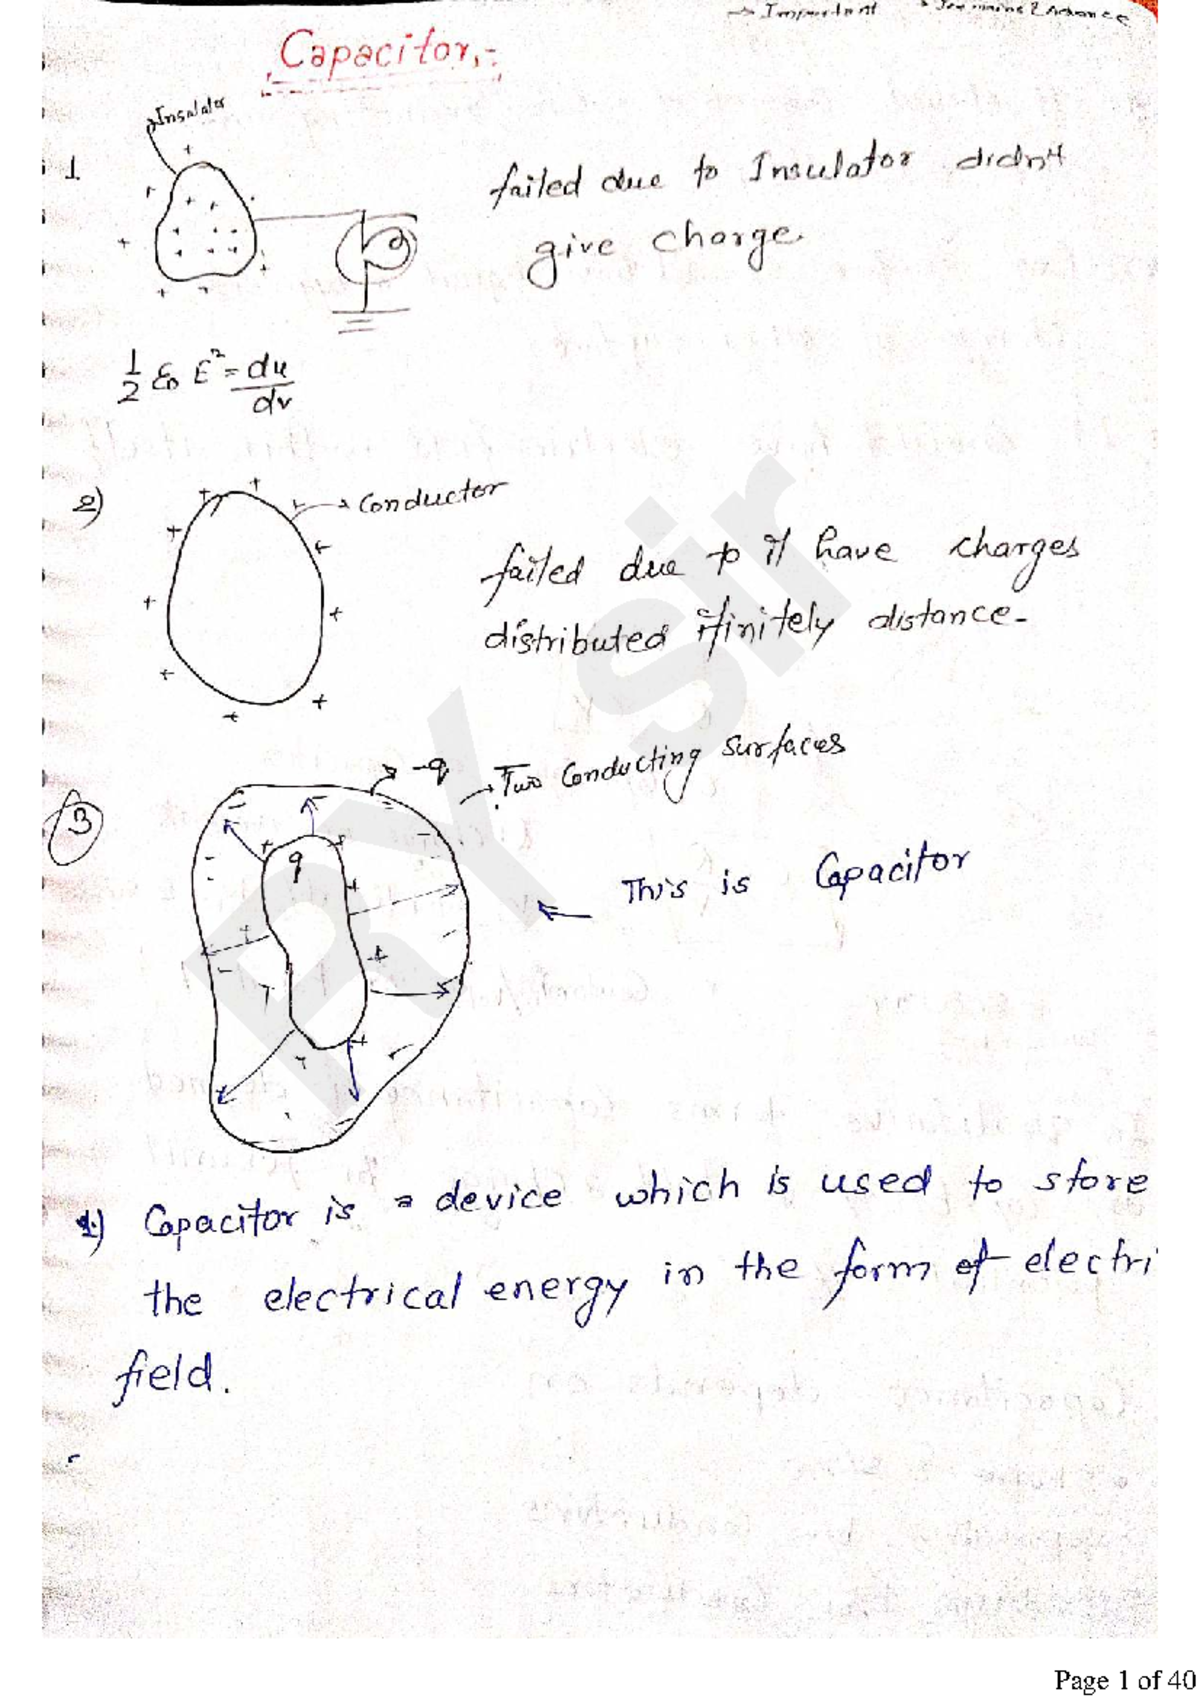 → Important
Capacitor:-
Insulator
1.
failed due to Insulator didn't
give charge.
1/2 ε0 E² = du/dv
2)
→ Conductor
failed due to it have charges
distributed ifinitely distance.
3
-q
→ Two Conducting Surfaces
q
This is Capacitor
1.) Capacitor is a device which is used to store
the electrical energy in the form of electri
field.
RY sir
Page 1 of 40